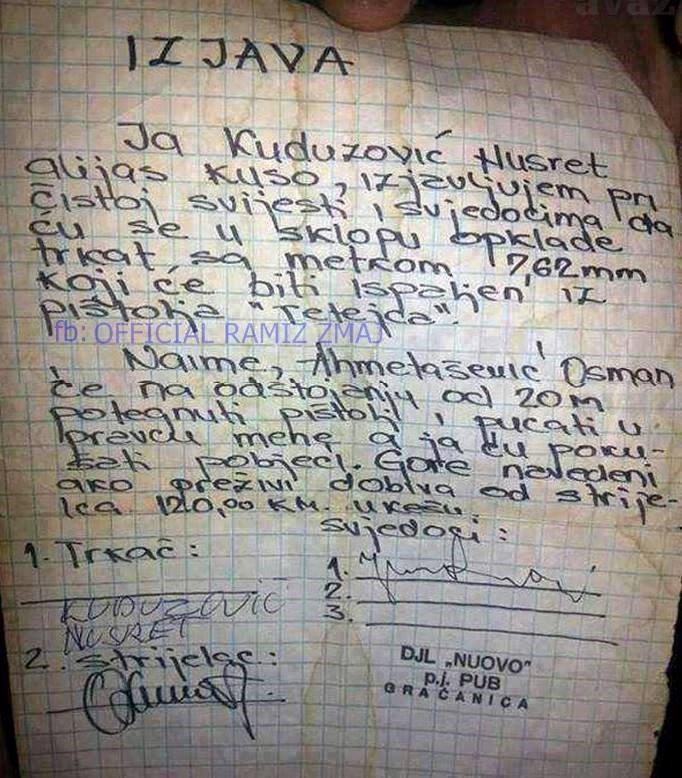 avaz
IZJAVA
Ja Kuduzović Husret
alijas Kuso, izjavljujem pri
čistoj svijesti i svjedocima da
ću se u sklopu opklade
trkat sa metkom 7,62mm
koji će biti ispaljen iz
pištolja "Tetejda".
fb: OFFICIAL RAMIZ ZMAJ
Naime, Ahmetašević Osman
će na odstojanju od 20m
potegnuti pištolj i pucati u
pravcu mene a ja ću poku-
šati pobjeći. Gore navedeni
ako preživi dobiva od strije-
lca 120,00 KM. u kešu
svjedoci:
1. Trkač:
1.
2.
KUDUZOVIĆ
3.
NUSRET
2. Strijelac:
DJL „NUOVO"
p.j. PUB
GRAČANICA